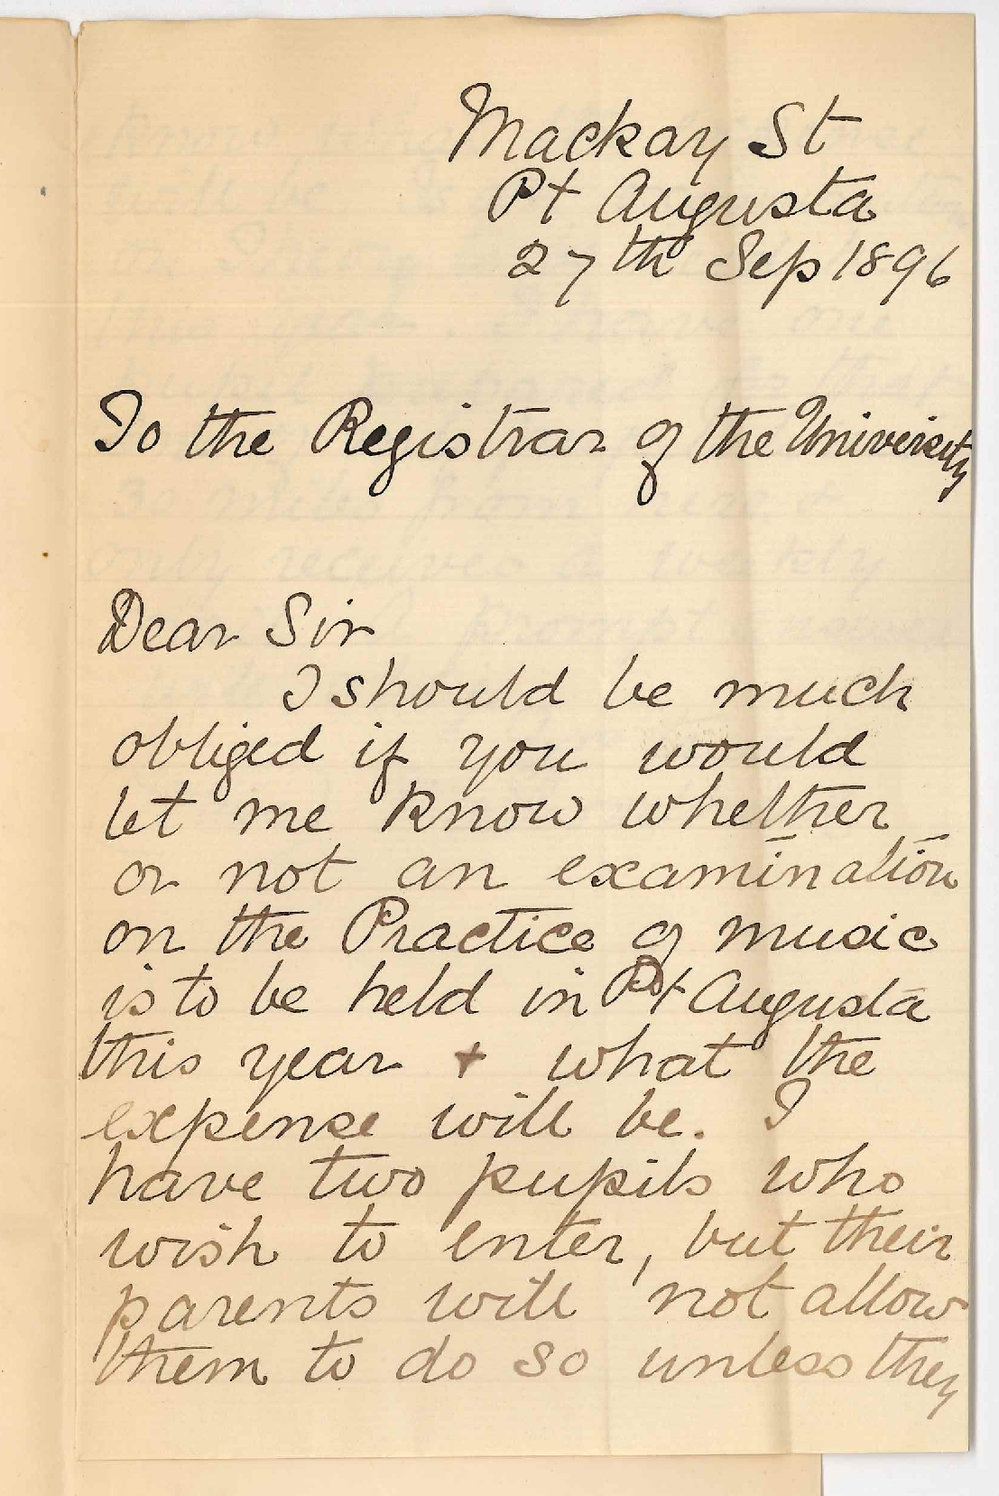 Mackay St
Pt Augusta
27th Sep 1896
To the Registrar of the University
Dear Sir
I should be much
obliged if you would
let me know whether
or not an examination
on the Practice of music
is to be held in Pt Augusta
this year + what the
expense will be. I
have two pupils who
wish to enter, but their
parents will not allow
them to do so unless they